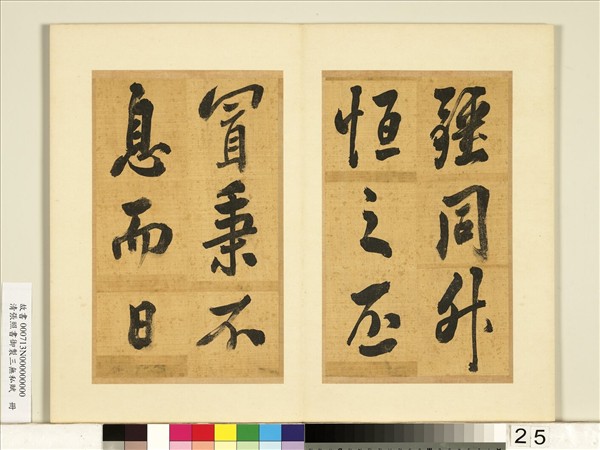 疆同升
恒之丕
冒秉不
息而日
故書 000713N000000000
清張照書御製三無私賦 冊
25